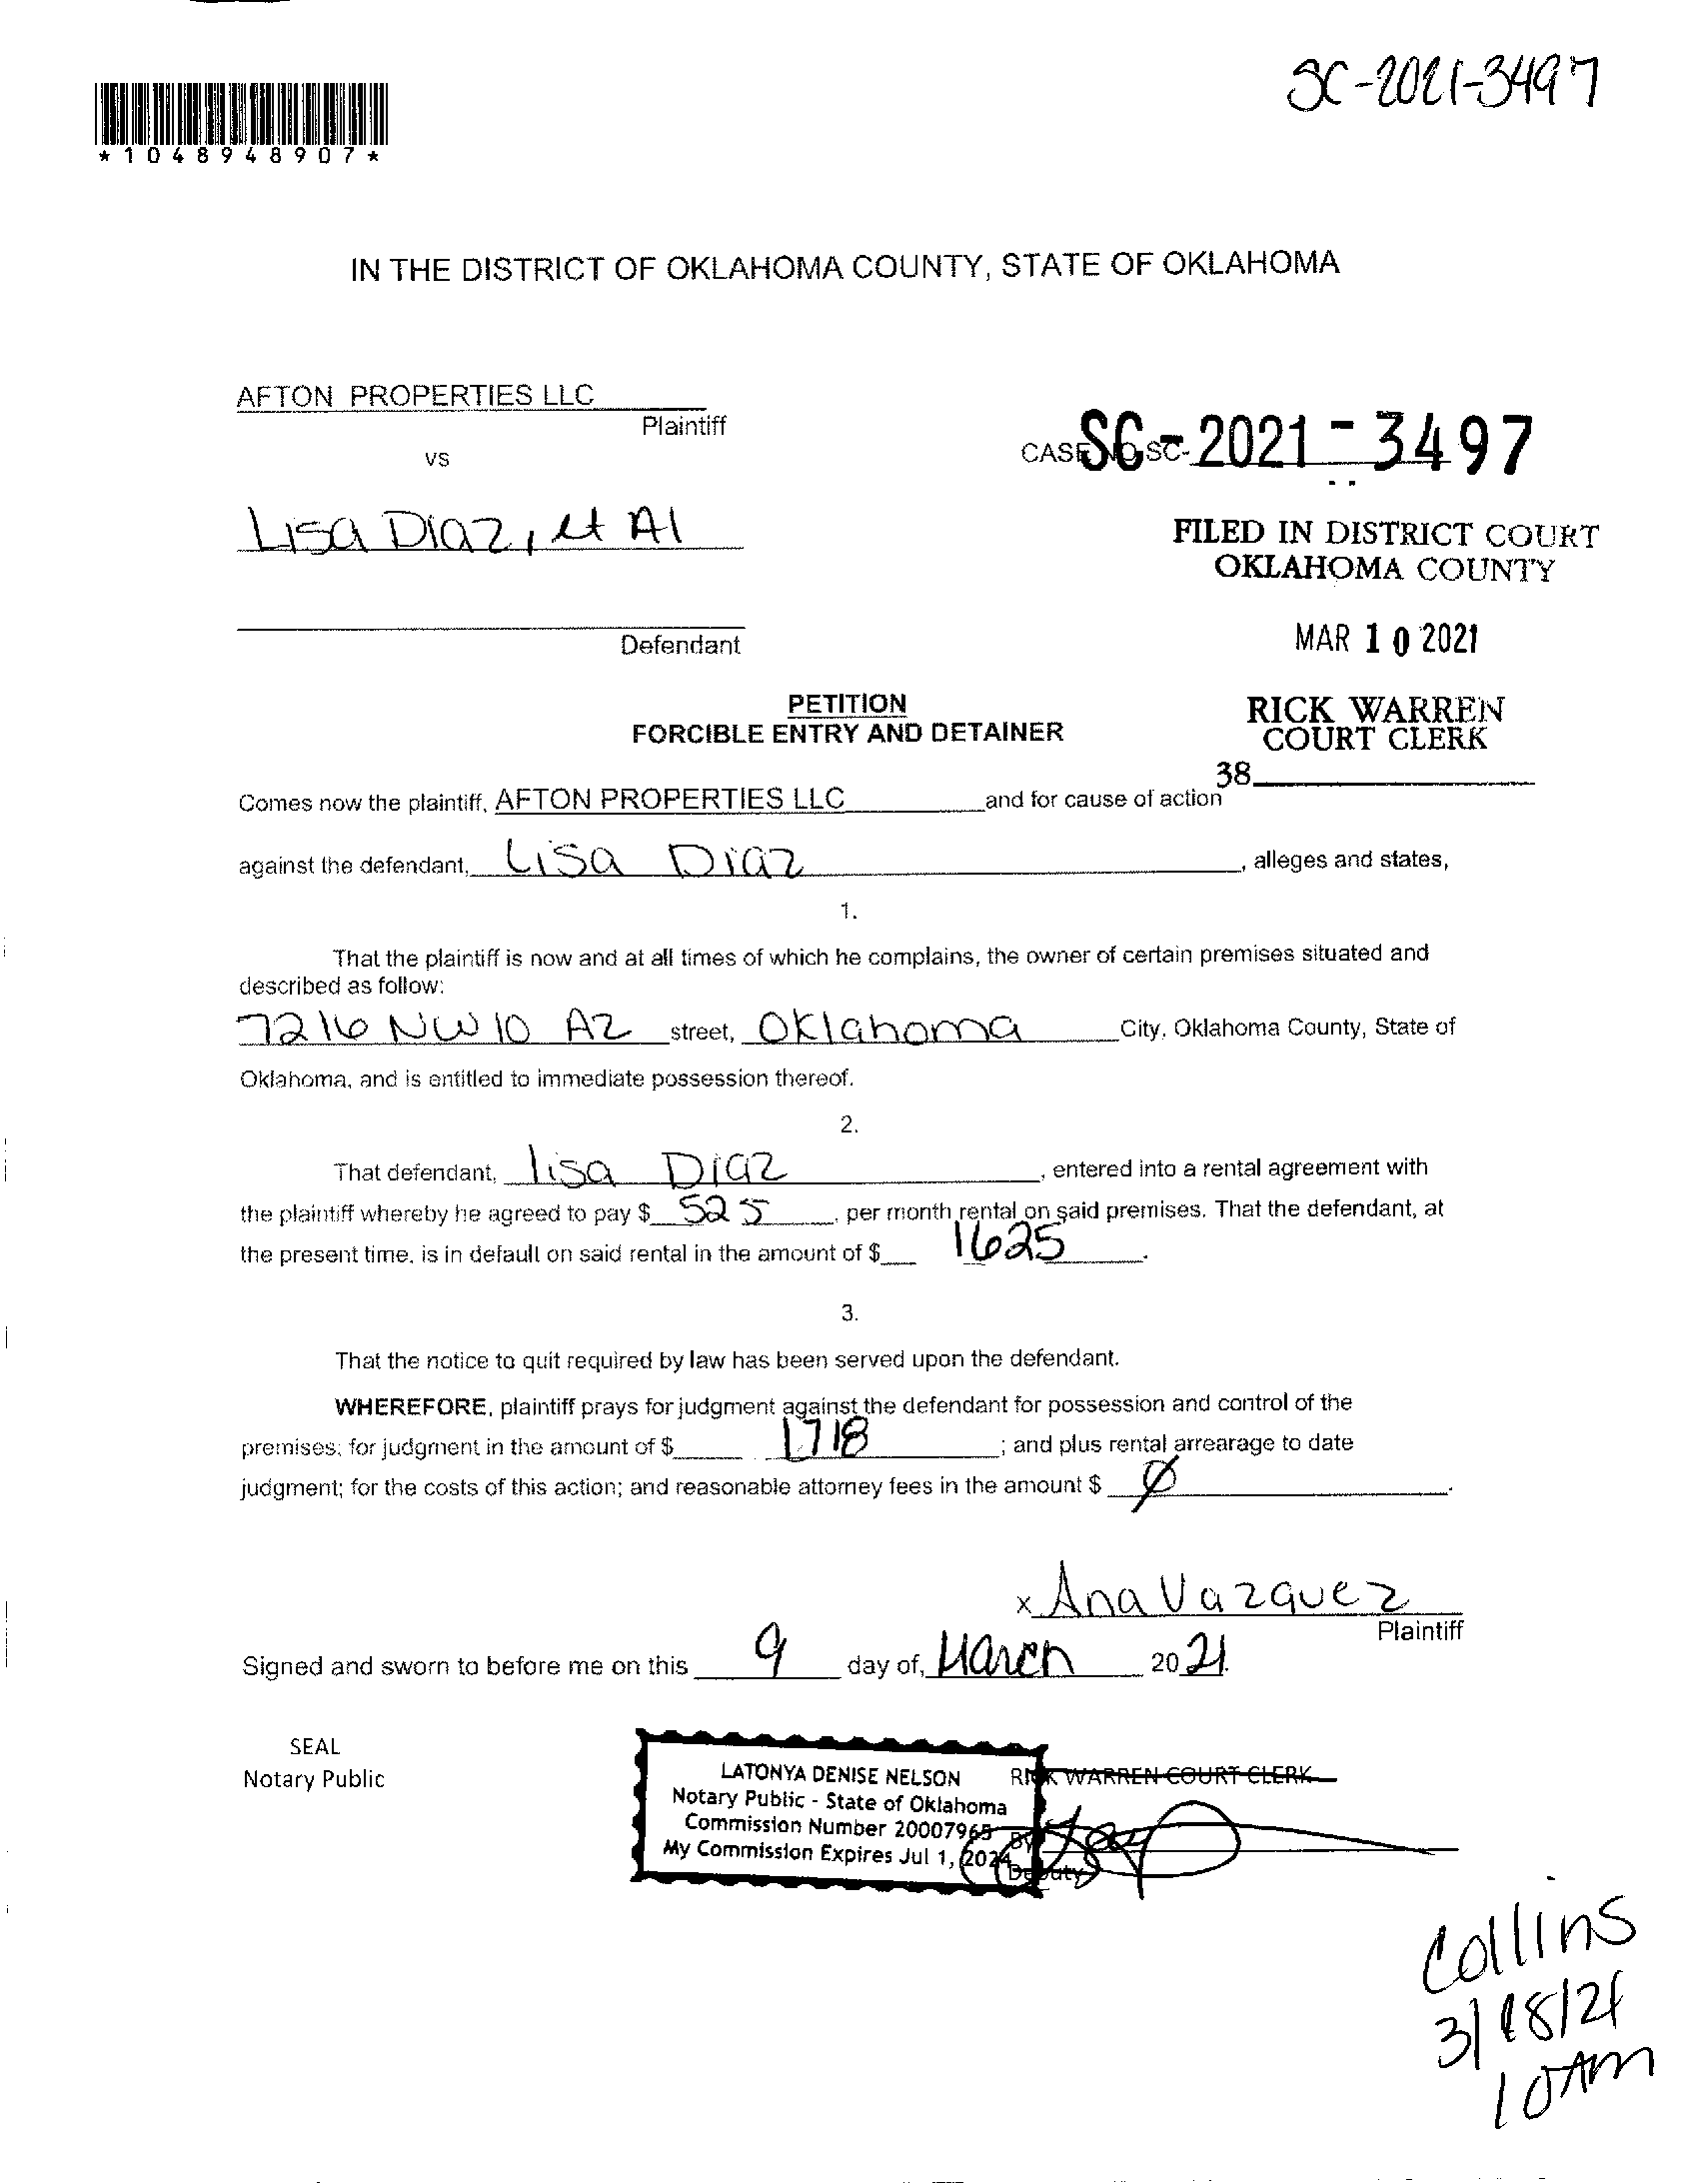 SC-2021-3497
*1048948907*
IN THE DISTRICT OF OKLAHOMA COUNTY, STATE OF OKLAHOMA
AFTON PROPERTIES LLC
Plaintiff
vs
CASE NO SC-
SC-2021-3497
Lisa Diaz, et Al
FILED IN DISTRICT COURT
OKLAHOMA COUNTY
Defendant
MAR 10 2021
PETITION
FORCIBLE ENTRY AND DETAINER
RICK WARREN
COURT CLERK
38
Comes now the plaintiff, AFTON PROPERTIES LLC and for cause of action
against the defendant, Lisa Diaz, alleges and states,
1.
That the plaintiff is now and at all times of which he complains, the owner of certain premises situated and
described as follow:
7216 NW 10 A2 street, Oklahoma City, Oklahoma County, State of
Oklahoma, and is entitled to immediate possession thereof.
2.
That defendant, lisa Diaz, entered into a rental agreement with
the plaintiff whereby he agreed to pay $ 525, per month rental on said premises. That the defendant, at
the present time, is in default on said rental in the amount of $ 1625.
3.
That the notice to quit required by law has been served upon the defendant.
WHEREFORE, plaintiff prays for judgment against the defendant for possession and control of the
premises; for judgment in the amount of $ 1718; and plus rental arrearage to date
judgment; for the costs of this action; and reasonable attorney fees in the amount $ Ø.
x Ana Vazquez
Plaintiff
Signed and sworn to before me on this 9 day of, March 2021.
SEAL
Notary Public
LATONYA DENISE NELSON
Notary Public - State of Oklahoma
Commission Number 20007965
My Commission Expires Jul 1, 2024
RICK WARREN COURT CLERK
By
Deputy
Collins
3/18/21
10AM